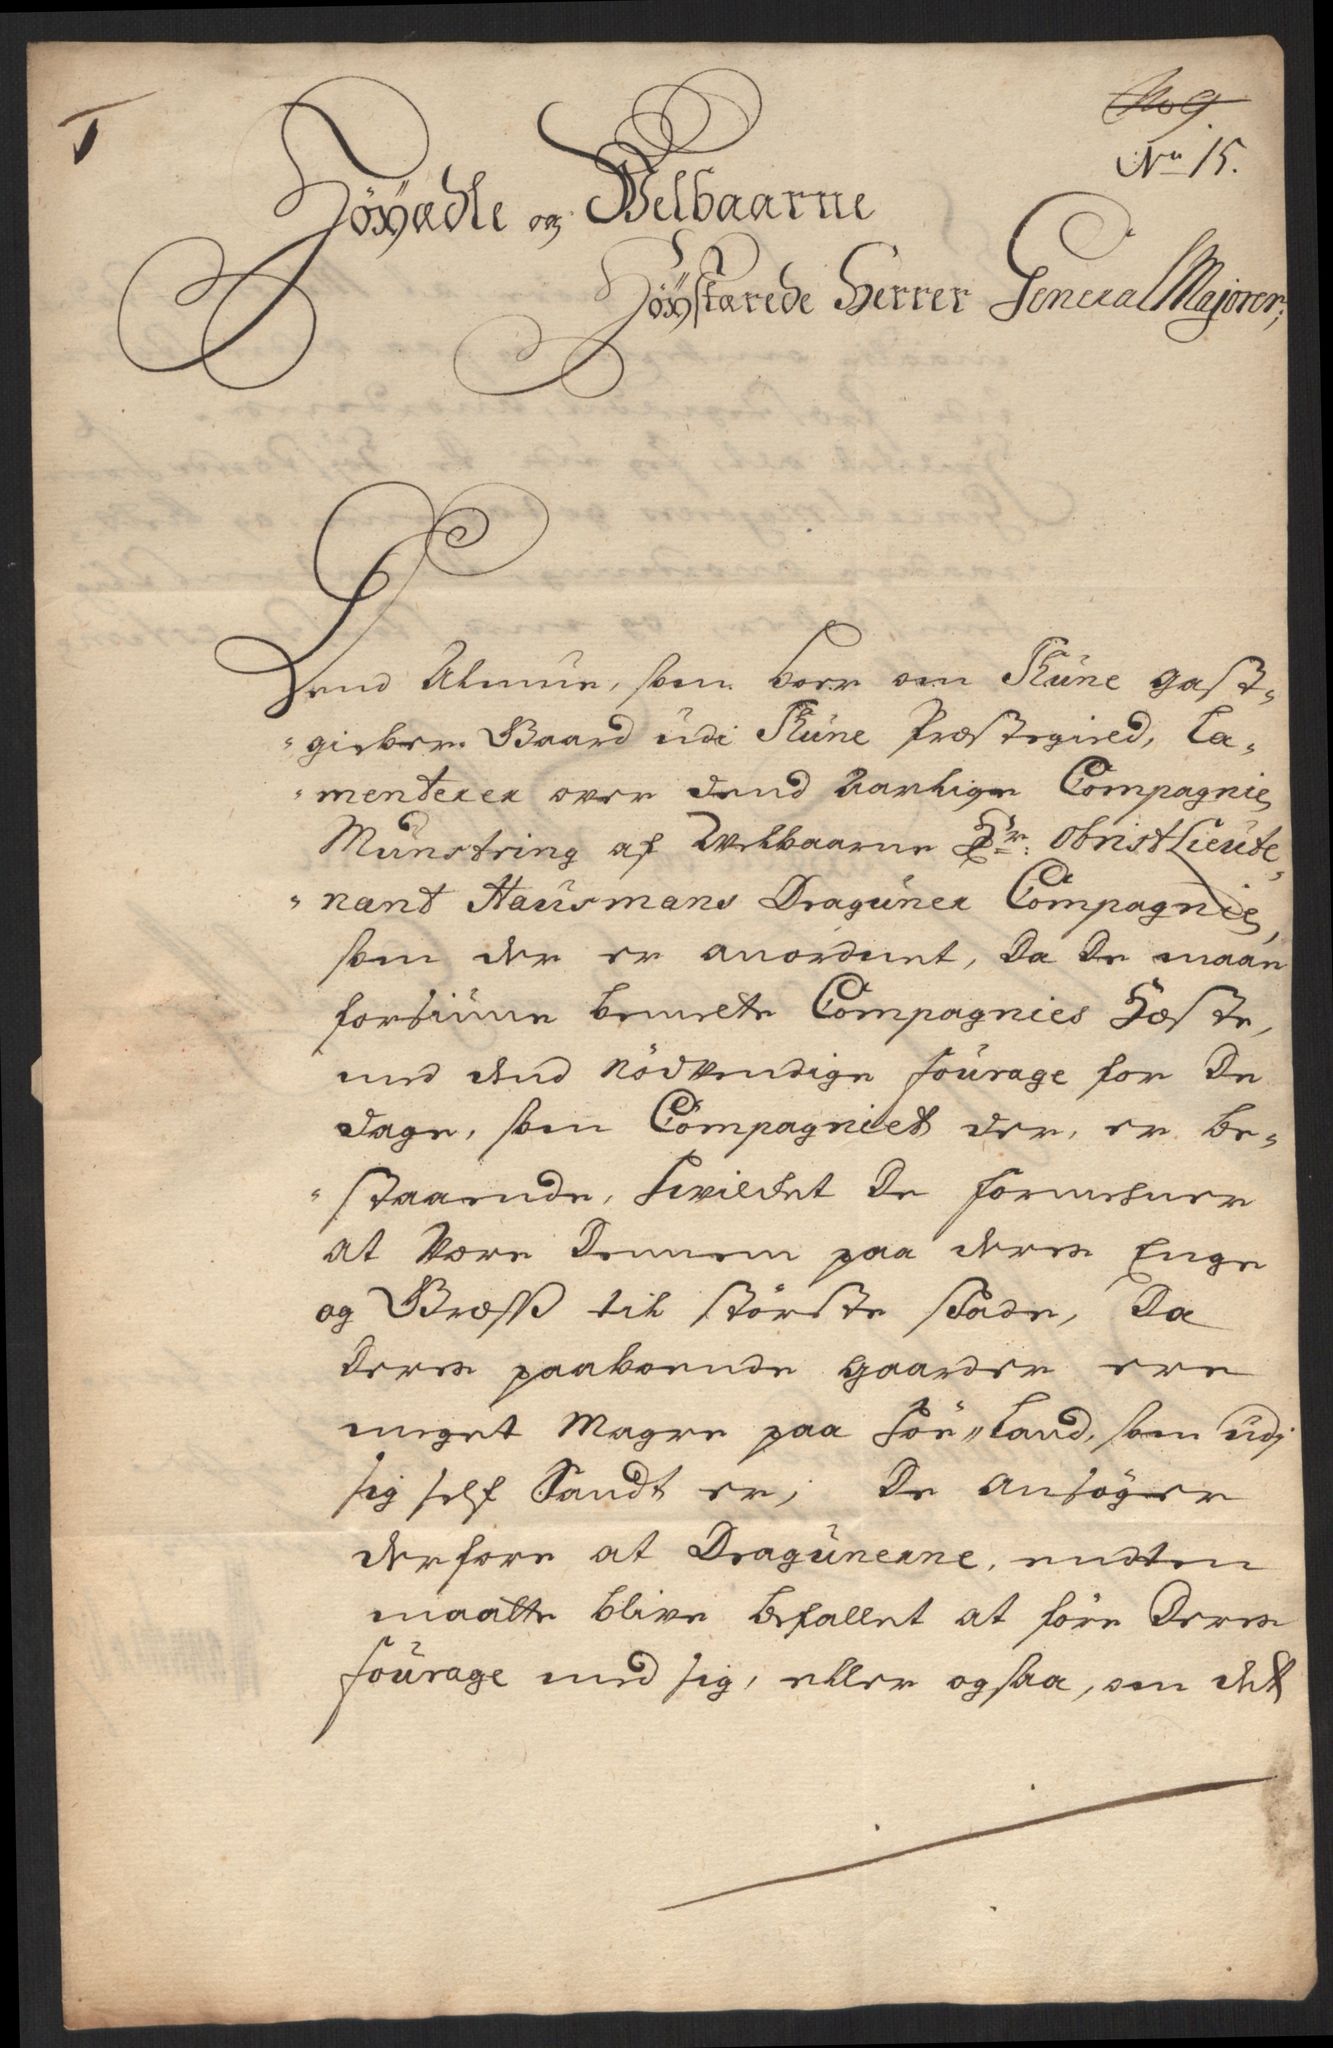 No 9
No 15.
Höyædle og Velbaarne
Höystærede Herrer General Majorer;
Dend Almue, som boer om Skune gast-
"gieber Gaard udi Skune Præstegield, La-
"menterer over dend Aarlige Compagnie
Munstring af Welbaarne Hr: Obrist Lieute-
"nant Hausmans Draguner Compagnie,
som der er anordnet, da de maae
forsiune bemelte Compagnies Hæste,
med dend nödvendige fourage for de
dage, som Compagniet der, er be-
"staaende, hvilchet de formeener
at være dennem paa deres Enge
og Græss til störste skade, da
deres paaboende gaarder ere
meget Magre paa höe-land, som udj
sig self Sandt er, de ansöger
derfore at Dragunerne, endten
maatte blive befallet at före deres
fourage med sig, eller ogsaa, om det